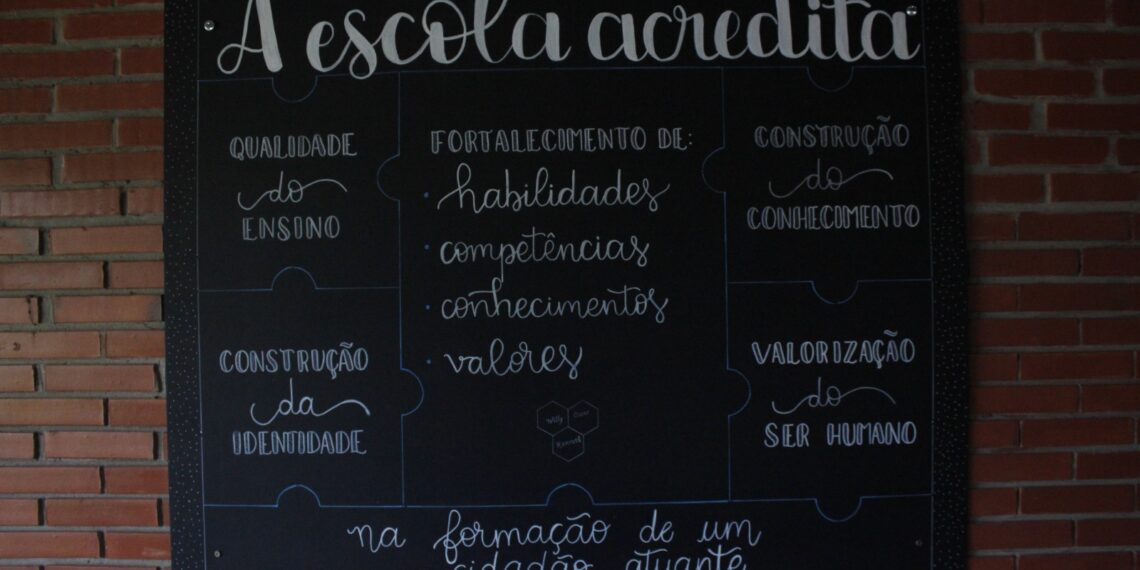 A escola acredita
QUALIDADE
do
ENSINO
FORTALECIMENTO DE:
· habilidades
· competências
· conhecimentos
· valores
CONSTRUÇÃO
do
CONHECIMENTO
CONSTRUÇÃO
da
IDENTIDADE
VALORIZAÇÃO
do
SER HUMANO
na formação de um
cidadão atuante